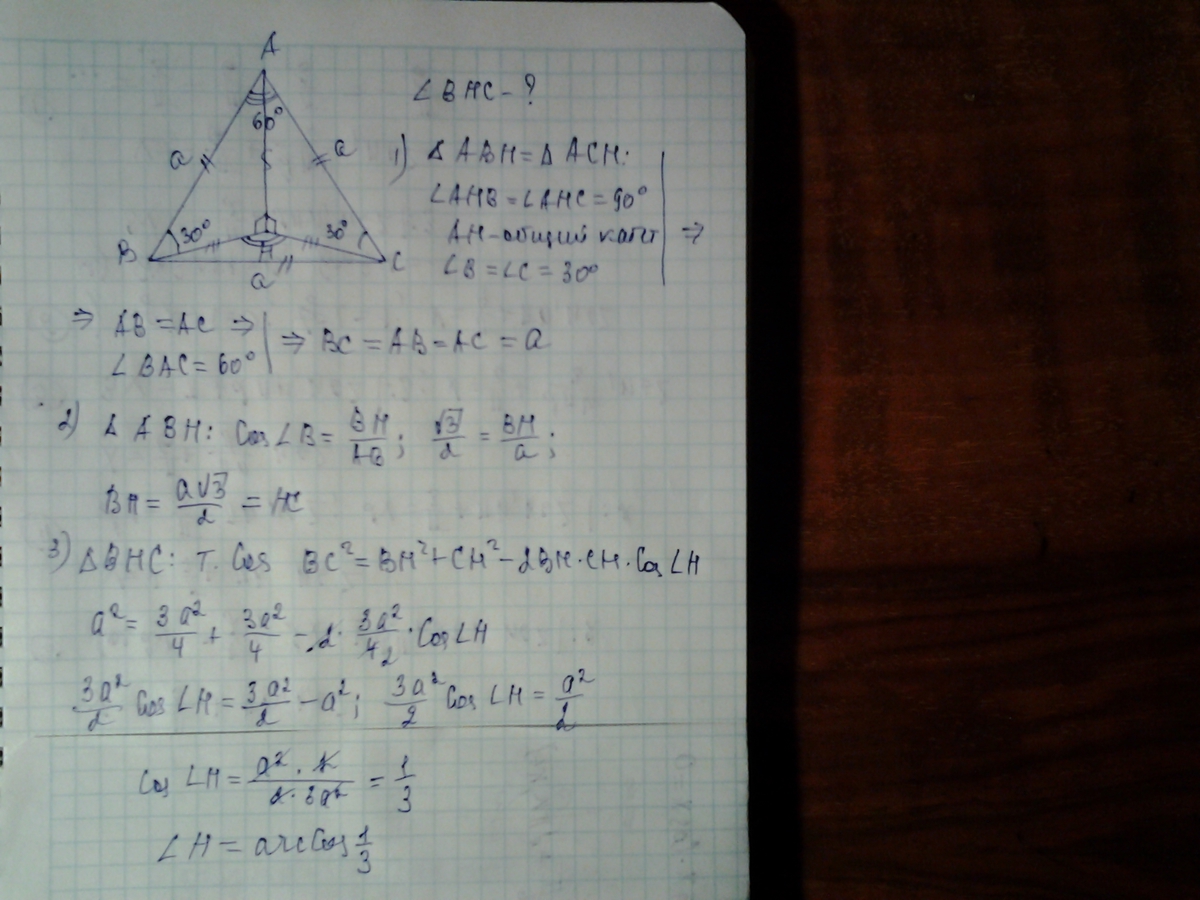 A
∠BHC - ?
60°
a
a
1) ΔABH = ΔACH:
∠AHB = ∠AHC = 90°
AH - общий катет ⇒
∠B = ∠C = 30°
B
30°
30°
H
C
a
⇒ AB = AC ⇒
∠BAC = 60°
⇒ BC = AB = AC = a
2) ΔABH: Cos∠B = BH/AB; √3/2 = BH/a;
BH = a√3/2 = HC
3) ΔBHC: т. Cos BC² = BH² + CH² - 2BH·CH·Cos∠H
a² = 3a²/4 + 3a²/4 - 2·3a²/4₂·Cos∠H
3a²/2 Cos∠H = 3a²/2 - a²; 3a²/2 Cos∠H = a²/2
Cos∠H = a²·2/2·3a² = 1/3
∠H = arcCos 1/3